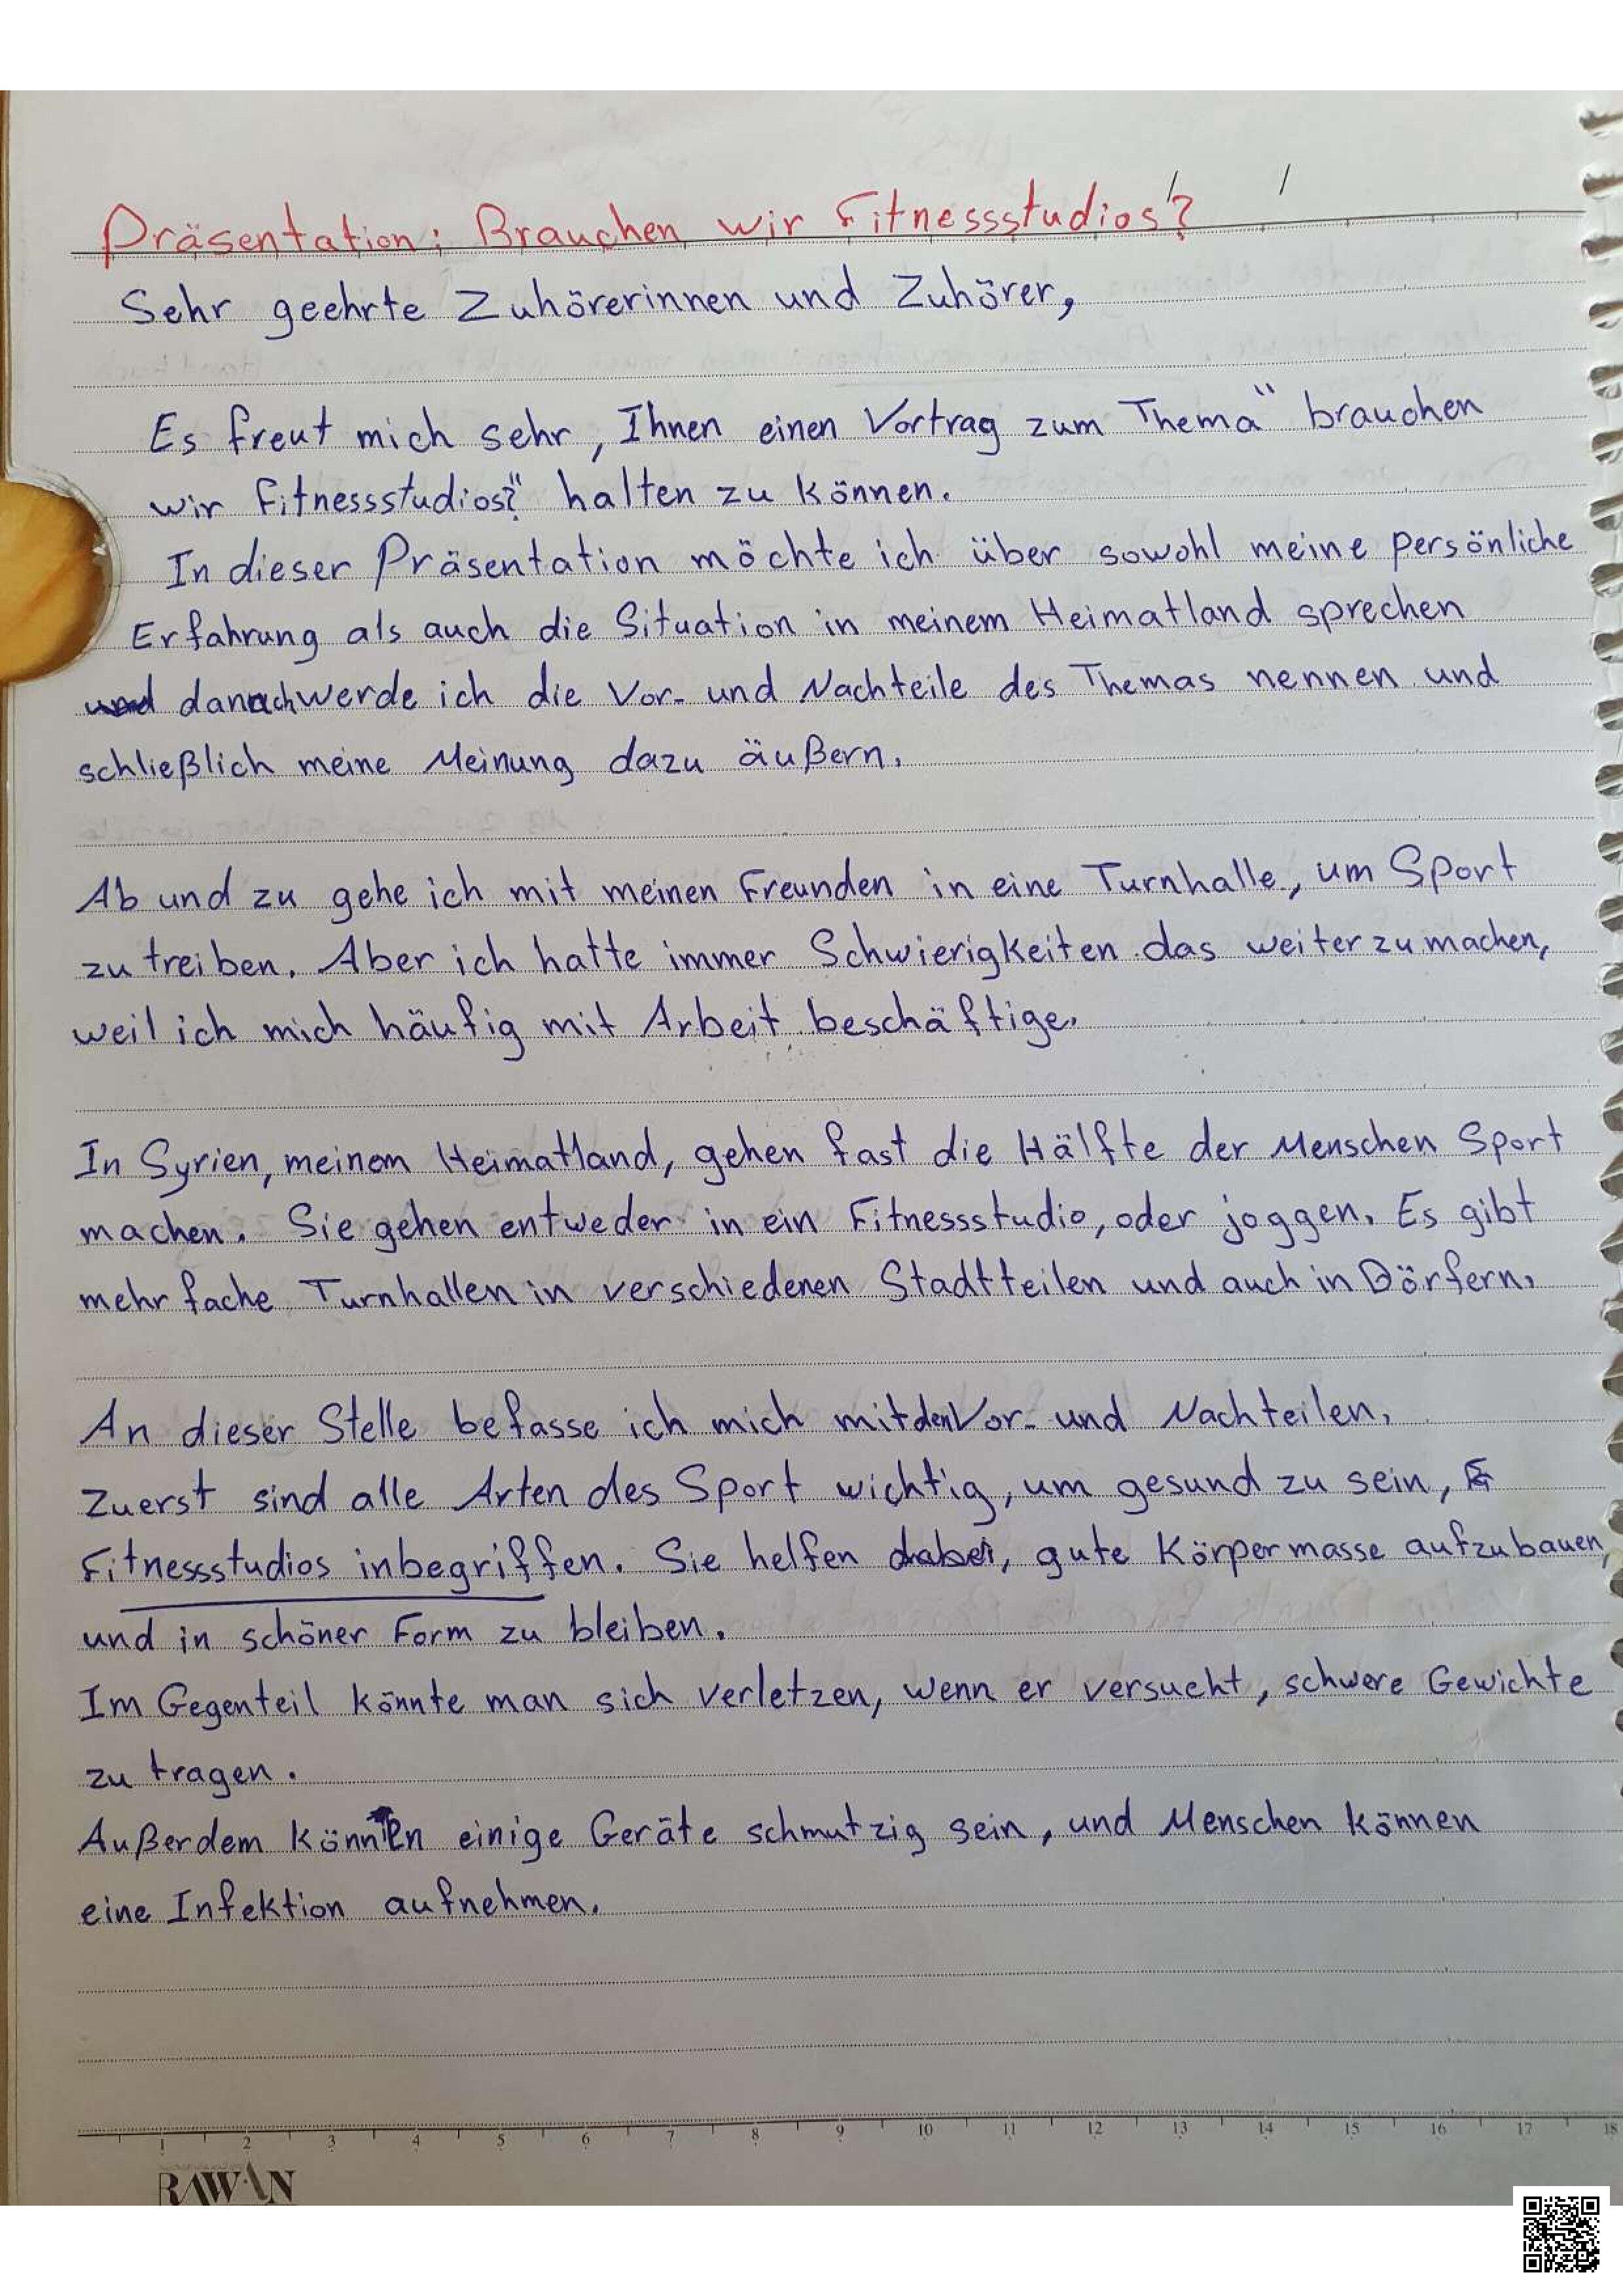 Präsentation: Brauchen wir Fitnessstudios?
Sehr geehrte Zuhörerinnen und Zuhörer,
Es freut mich sehr, Ihnen einen Vortrag zum Thema" brauchen
wir Fitnessstudios?" halten zu können.
In dieser Präsentation möchte ich über sowohl meine persönliche
Erfahrung als auch die Situation in meinem Heimatland sprechen
und danach werde ich die Vor- und Nachteile des Themas nennen und
schließlich meine Meinung dazu äußern.
Ab und zu gehe ich mit meinen Freunden in eine Turnhalle, um Sport
zu treiben. Aber ich hatte immer Schwierigkeiten das weiterzumachen,
weil ich mich häufig mit Arbeit beschäftige.
In Syrien, meinem Heimatland, gehen fast die Hälfte der Menschen Sport
machen. Sie gehen entweder in ein Fitnessstudio, oder joggen. Es gibt
mehrfache Turnhallen in verschiedenen Stadtteilen und auch in Dörfern.
An dieser Stelle befasse ich mich mit den Vor- und Nachteilen.
Zuerst sind alle Arten des Sport wichtig, um gesund zu sein,
Fitnessstudios inbegriffen. Sie helfen dabei, gute Körpermasse aufzubauen,
und in schöner Form zu bleiben.
Im Gegenteil könnte man sich verletzen, wenn er versucht, schwere Gewichte
zu tragen.
Außerdem können einige Geräte schmutzig sein, und Menschen können
eine Infektion aufnehmen.
1 2 3 4 5 6 7 8 9 10 11 12 13 14 15 16 17 18
RAWAN